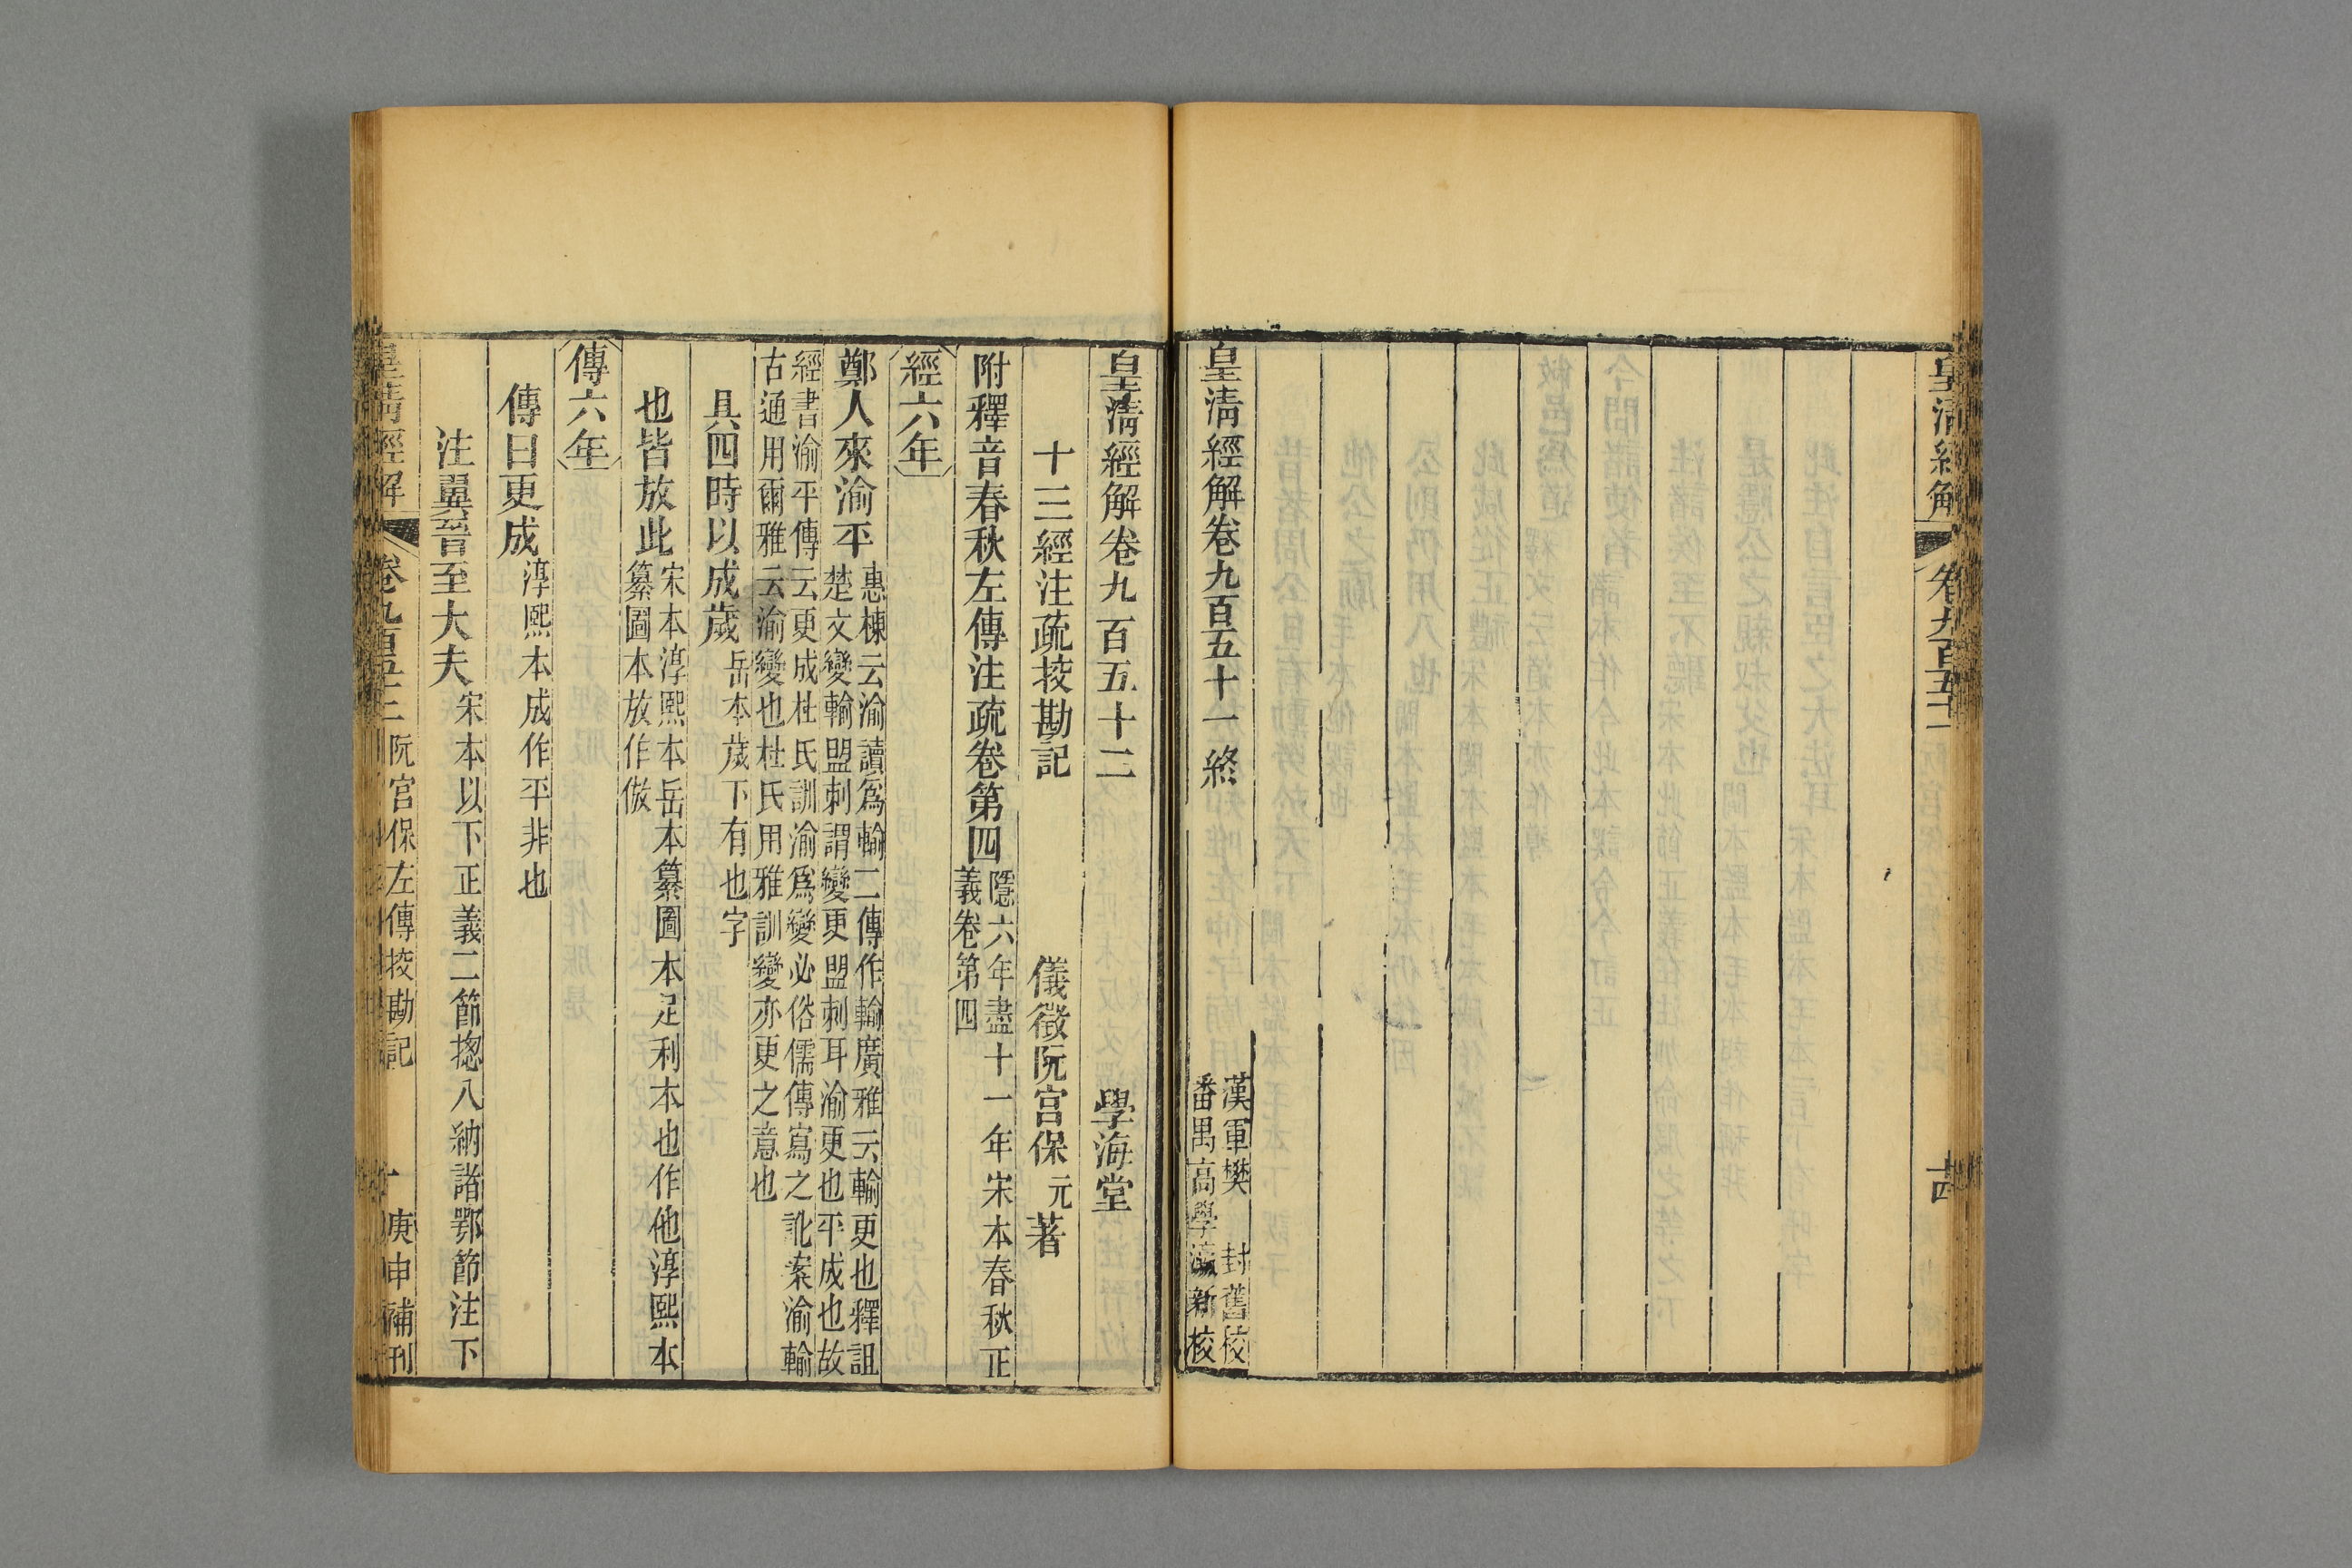 皇清經解
卷九百五十一
皇清經解卷九百五十一終
漢軍樊封舊校
番禺高學瀛新校
皇清經解卷九百五十二
學海堂
十三經注疏挍勘記
儀徵阮宮保元著
附釋音春秋左傳注疏卷第四
隱六年盡十一年宋本春秋正
義卷第四
經六年
鄭人來渝平
惠棟云渝讀爲輸二傳作輸廣雅云輸更也釋詛
楚文變輸盟刺謂變更盟刺耳渝更也平成也故
經書渝平傳云更成杜氏訓渝爲變必俗儒傳寫之訛案渝輸
古通用爾雅云渝變也杜氏用雅訓變亦更之意也
具四時以成歲
岳本歲下有也字
也皆放此
宋本淳熙本岳本纂圖本足利本也作他淳熙本
纂圖本放作倣
傳六年
傳曰更成
淳熙本成作平非也
注翼晉至大夫
宋本以下正義二節揔入納諸鄂節注下
皇清經解
卷九百五十二
阮宮保左傳挍勘記
一
庚申補刊